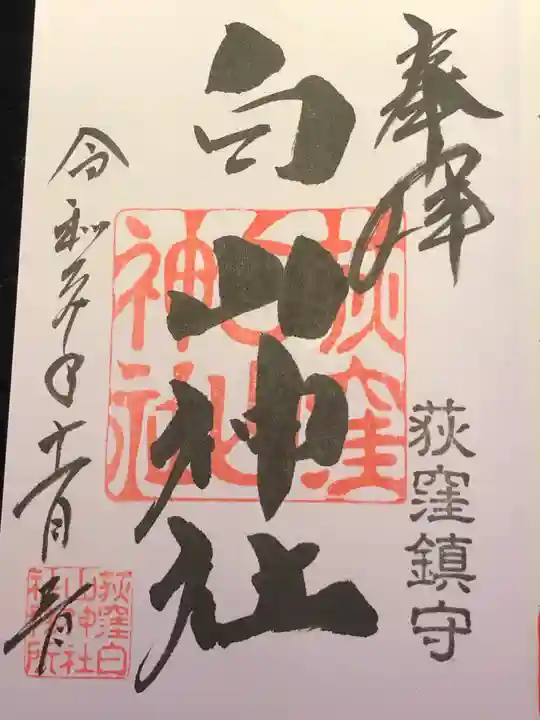 奉拝
荻窪鎮守
白山神社
荻窪
白山
神社
令和
年十一月
荻窪白
山神社
社務所